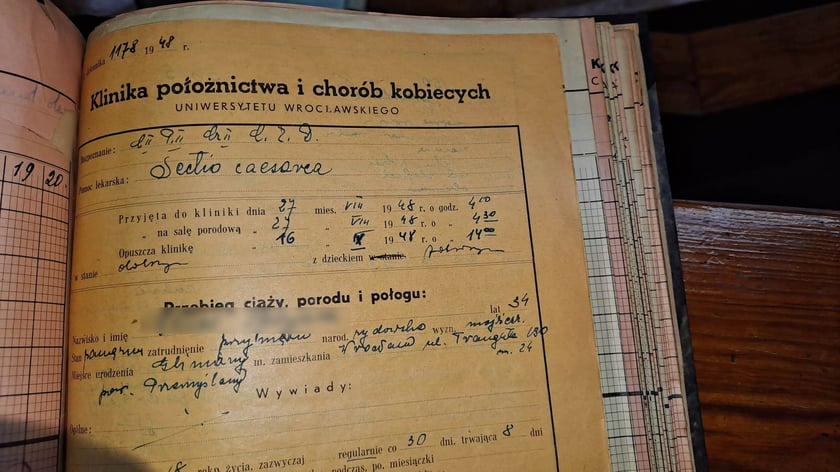 19 20.
1178 1948 r.
Klinika położnictwa i chorób kobiecych
UNIWERSYTETU WROCŁAWSKIEGO
Rozpoznanie:
Pomoc lekarska: Sectio caesarea
Przyjęta do kliniki dnia 27 mies. VIII 1948 r. o godz. 4⁰⁰
„ na salę porodową „ 27 „ VIII 1948 r. o „ 4³⁰
Opuszcza klinikę „ 16 „ 1948 r. o „ 14⁰⁰
w stanie dobrym z dzieckiem w stanie
Przebieg ciąży, porodu i połogu:
Nazwisko i imię lat 34
Stan zatrudnienie przy mężu narod. żydowska wyzn. mojżesz.
Miejsce urodzenia m. zamieszkania Wrocław ul. Traugutta 130
pow. Przemyślany m. 24
Wywiady:
Ogólne:
roku życia, zazwyczaj regularnie co 30 dni, trwająca 8 dni
podczas, po, miesiączki